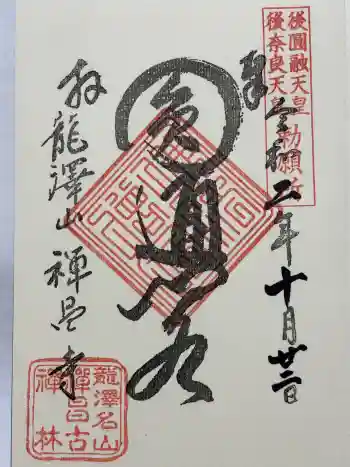 後圓融天皇
後奈良天皇
勅願所
令和二年十月廿二日
通
於龍澤山禅昌寺
龍澤名山
禪昌古
禪林